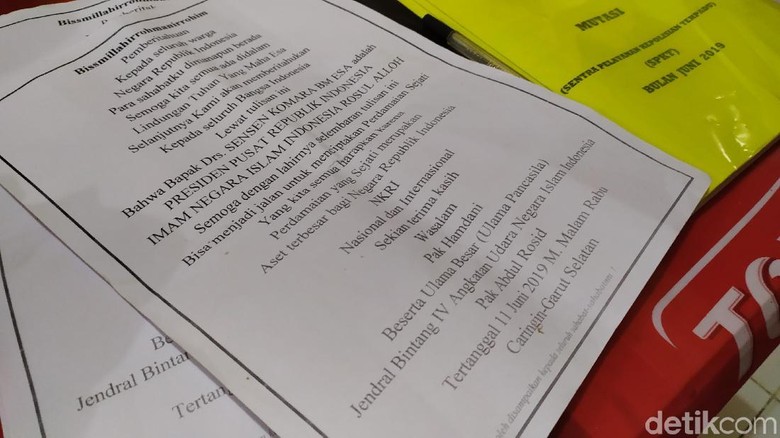 Bissmillahirrohmanirrohim
Bissmillahirrohmanirrohim
Pemberitahuan
Kepada seluruh warga
Negara Republik Indonesia
Para sahabatku dimanapun berada
Semoga kita semua ada didalam
Lindungan Tuhan Yang Maha Esa
Selanjutnya Kami akan memberitahukan
Kepada seluruh Bangsa Indonesia
Lewat tulisan ini
Bahwa Bapak Drs. SENSEN KOMARA BM ESA adalah
PRESIDEN PUSAT REPUBLIK INDONESIA
IMAM NEGARA ISLAM INDONESIA ROSUL ALLOH
Semoga dengan lahirnya selembaran tulisan ini
Bisa menjadi jalan untuk menciptakan Perdamaian Sejati
Yang kita semua harapkan karena
Perdamaian yang Sejati merupakan
Aset terbesar bagi Negara Republik Indonesia
NKRI
Nasional dan Internasional
Sekian terima kasih
Wasalam
Pak Hamdani
Beserta Ulama Besar (Ulama Pancasila)
Jendral Bintang IV Angkatan Udara Negara Islam Indonesia
Pak Abdul Rosid
Tertanggal 11 Juni 2019 M. Malam Rabu
Caringin-Garut Selatan
disampaikan kepada seluruh sahabat-sahabatku !
Jendral Bintan
Tertang
MUTASI
(SENTRA PELAYANAN KEPOLISIAN TERPADU)
(SPKT)
BULAN JUNI 2019
detikcom